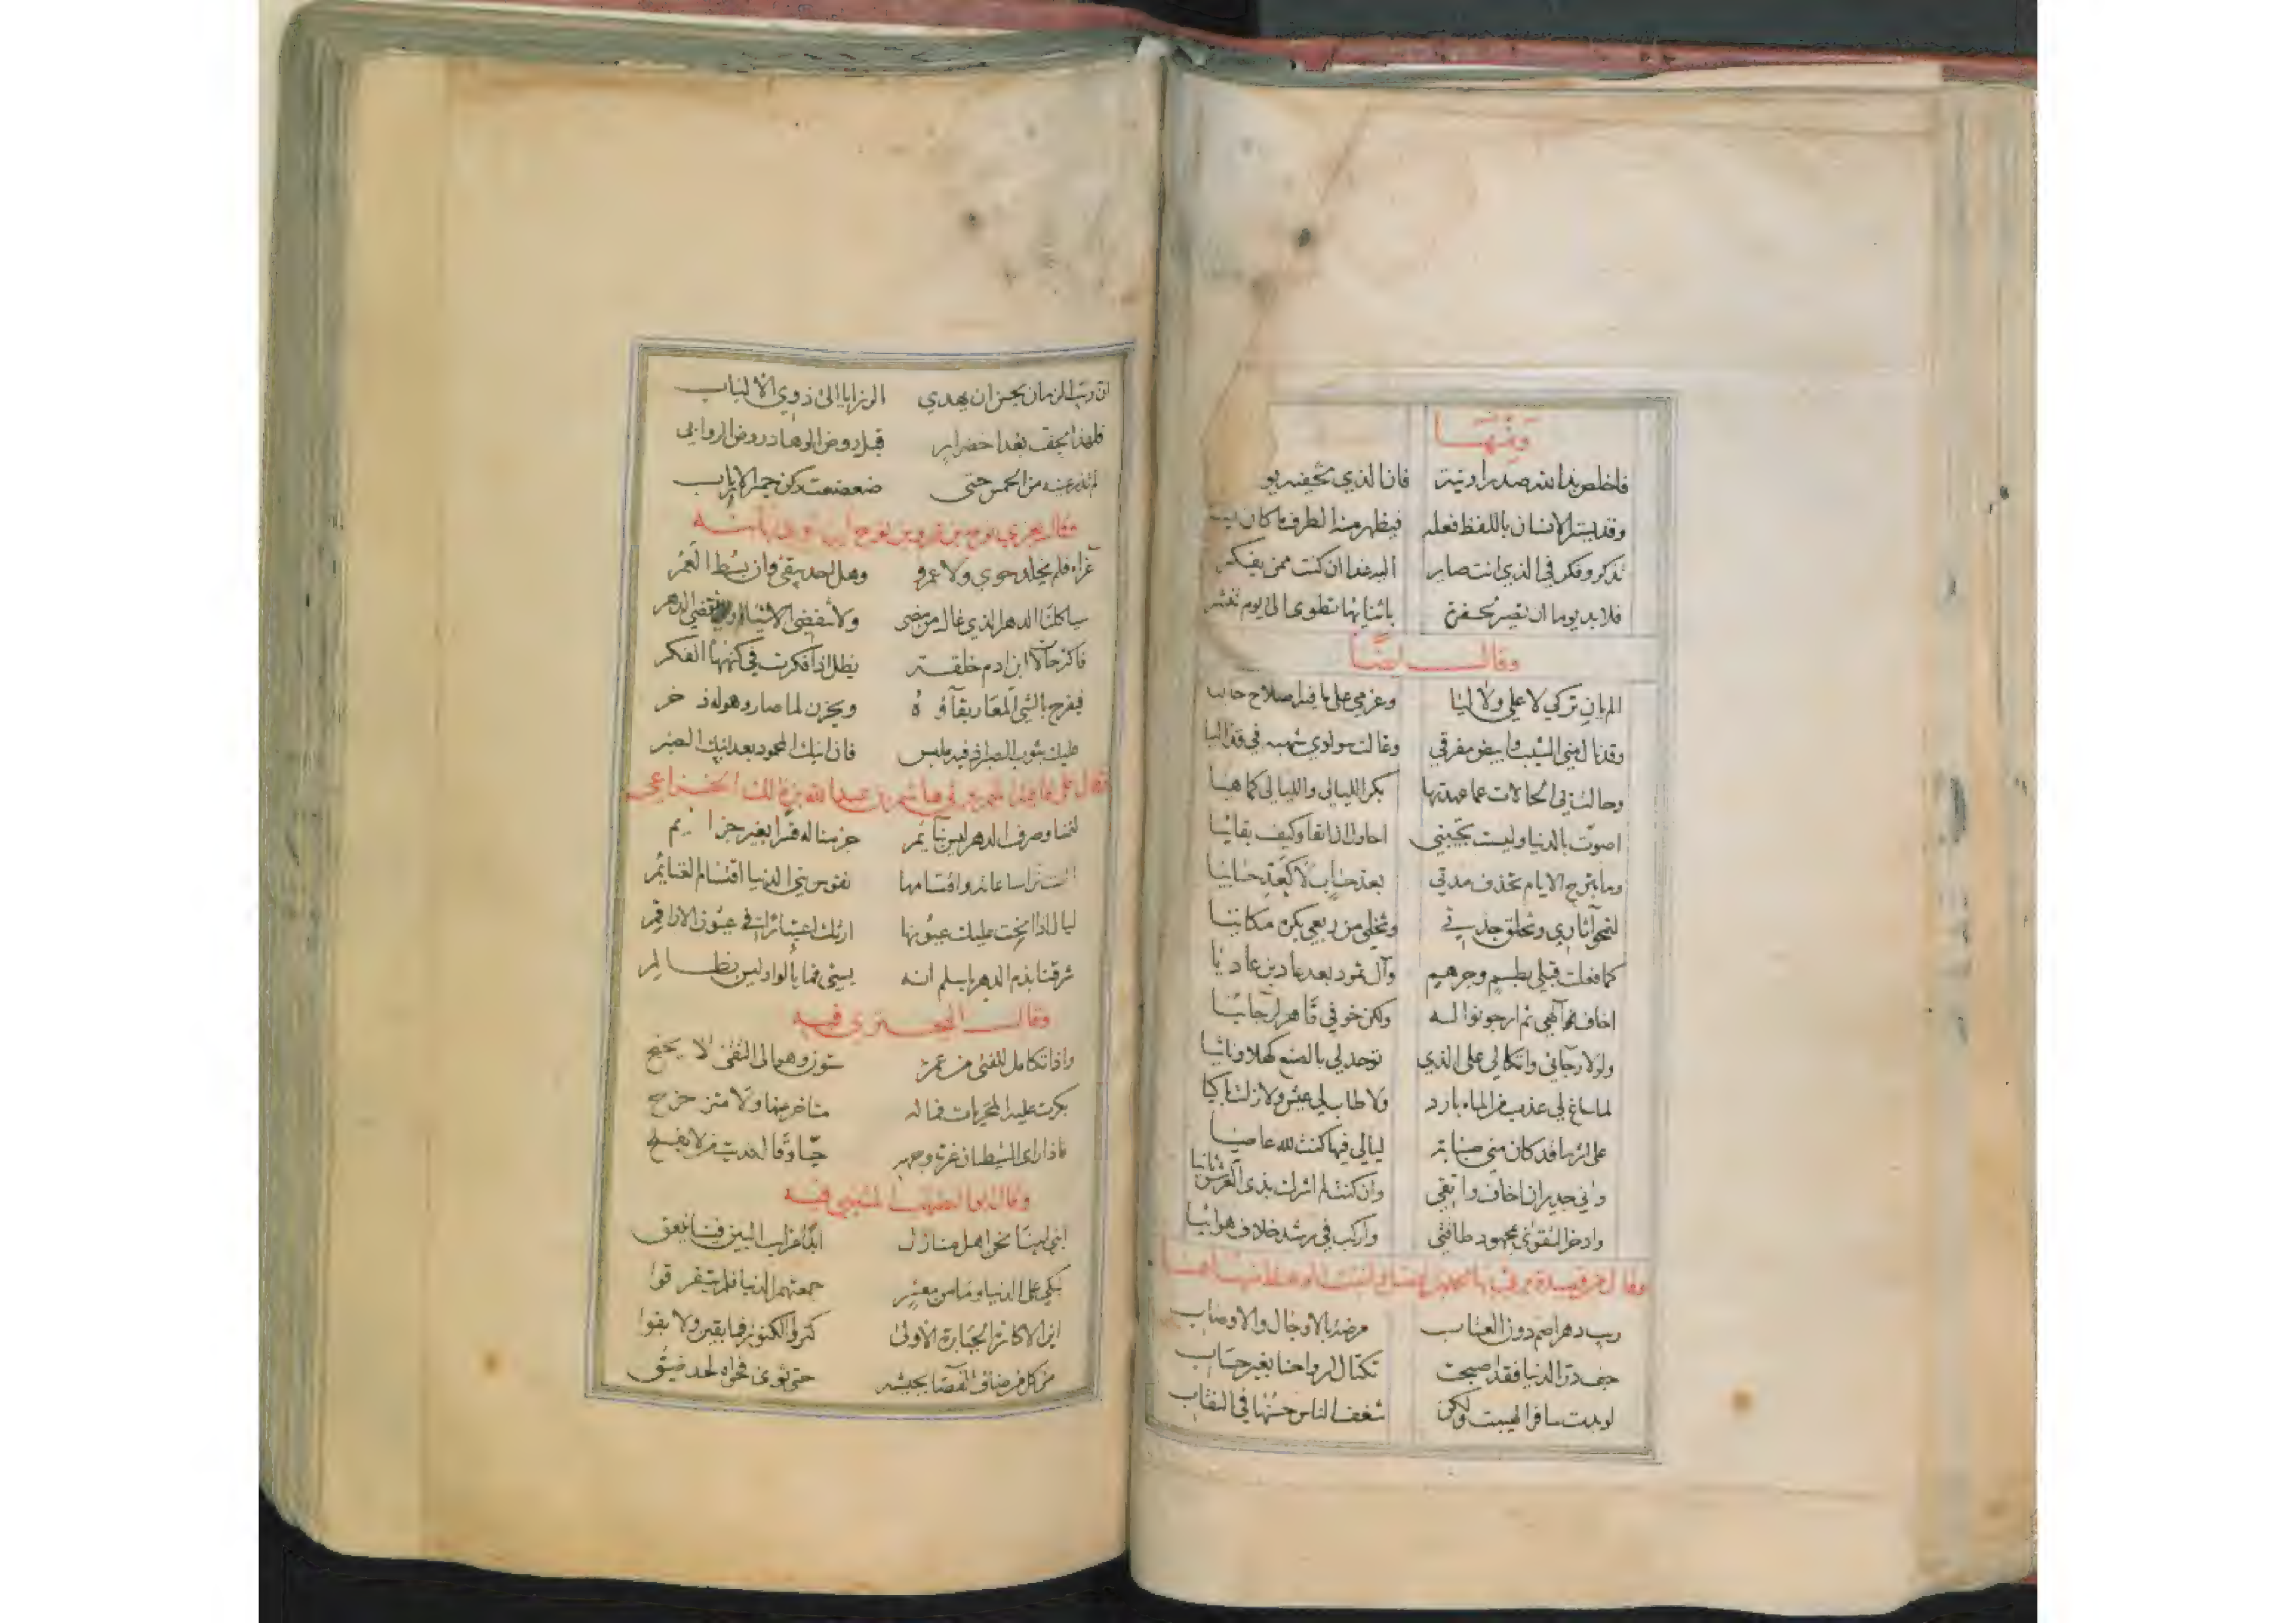 ومنها
فاخلص لهذا الله صدرا ونية فان الذي تخفيه
وقد يستر الانسان باللفظ فعله فيظهر منه الطرف ما كان
تذكر وفكر في الذي انت صاير اليه غدا ان كنت ممن يفكر
فلا بد يوما ان تصير بحفرة باثنائها تطوى الى يوم تنشر
وقال ايضا
الم يان تركي لا علي ولا ليا وعزمي على ما فيه اصلاح حاليا
وقد نال مني الشيب وابيض مفرقي وغالت سوادي شهبة في قذاليا
وحالت بي الحالات عما عهدتها بكر الليالي والليالي كما هيا
اصوت بالدنيا وليست تجيبني احاول ان ابقى وكيف بقائيا
وما تبرح الايام تحذف مدتي بعد حساب لا كعد حسابيا
لتمحو آثاري وتخلق جدتي وتخلي من ربعي بكره مكانيا
كما فعلت قبلي بطسم وجرهم وآل ثمود بعد عاد بن عاديا
اخاف الهي ثم ارجو نواله ولكن خوفي قاهر لرجائيا
ولولا رجائي واتكالي على الذي توحد لي بالصنع كهلا وناشيا
لما ساغ لي عذب من الماء بارد ولا طاب لي عيش ولا زلت باكيا
على اثر ما قد كان مني صبابة ليالي فيها كنت لله عاصيا
واني جدير ان اخاف واتقي وان كنت لم اشرك بذي العرش ثانيا
وادخر التقوى بمجهود طاقتي واركب في رشد خلاف هوائيا
وقال من قصيدة
ريب دهر اصم دون العتاب مرصد بالاوجال والاوصاب
جف در الدنيا فقد اصبحت تكتال ارواحنا بغير حساب
لو بدت سافرا اهينت ولكن شغف الناس حسنها في النقاب
ان ريب الزمان يحسن ان يهدي الرزايا الى ذوي الالباب
فلهذا يجف بعد اخضرار قبل روض الوهاد روض الروابي
لم تدر عينه من الحمس حتى ضعضعت ركن حمير الارباب
وقال يعزي نوح بن عمرو بن نوح
عزاء فلم يخلد حوي ولا عمرو وهل احد يبقى وان بسط العمر
سياكلنا الدهر الذي غال من مضى ولا تنقضي الاشياء او ينقضي الدهر
فاكثر حالات ابن ادم خلقة يظل اذا فكرت في كنهها الفكر
فيفرح بالشي المعار بقآؤه ويحزن لما صار وهو له ذخر
عليك بثوب الصبر اذ فيه ملبس فان ابنك المحمود بعد ابنك الصبر
هاشم بن عبد الله بن مالك الخزاعي
لنمنا وصرف الدهر ليس بنائم خزمنا له قسرا بغير خزائم
الست ترى ساعاته واقتسامها نفوس بني الدنيا اقتسام الغنائم
ليال اذا انحت عليك عيونها ارتك اعتبارا في عيون الاراقم
شرقنا بذم الدهر يا سلم انه يسيء فما يألو وليس بظالم
وقال البحتري فيه
واذا تكامل للفتى من عمره ستون وهو الى التقى لا يجنح
عكفت عليه المخزيات فما له متاخر عنها ولا متزحزح
فاذا راى الشيطان غرة وجهه حيا وقال فديت من لا يفلح
وقال ابو الطيب المتنبي فيه
ابني ابينا نحن اهل منازل ابدا غراب البين فينا ينعق
نبكي على الدنيا وما من معشر جمعتهم الدنيا فلم يتفرقوا
اين الاكاسرة الجبابرة الاولى كنزوا الكنوز فما بقين ولا بقوا
من كل من ضاق الفضا بجيشه حتى ثوى فحواه لحد ضيق